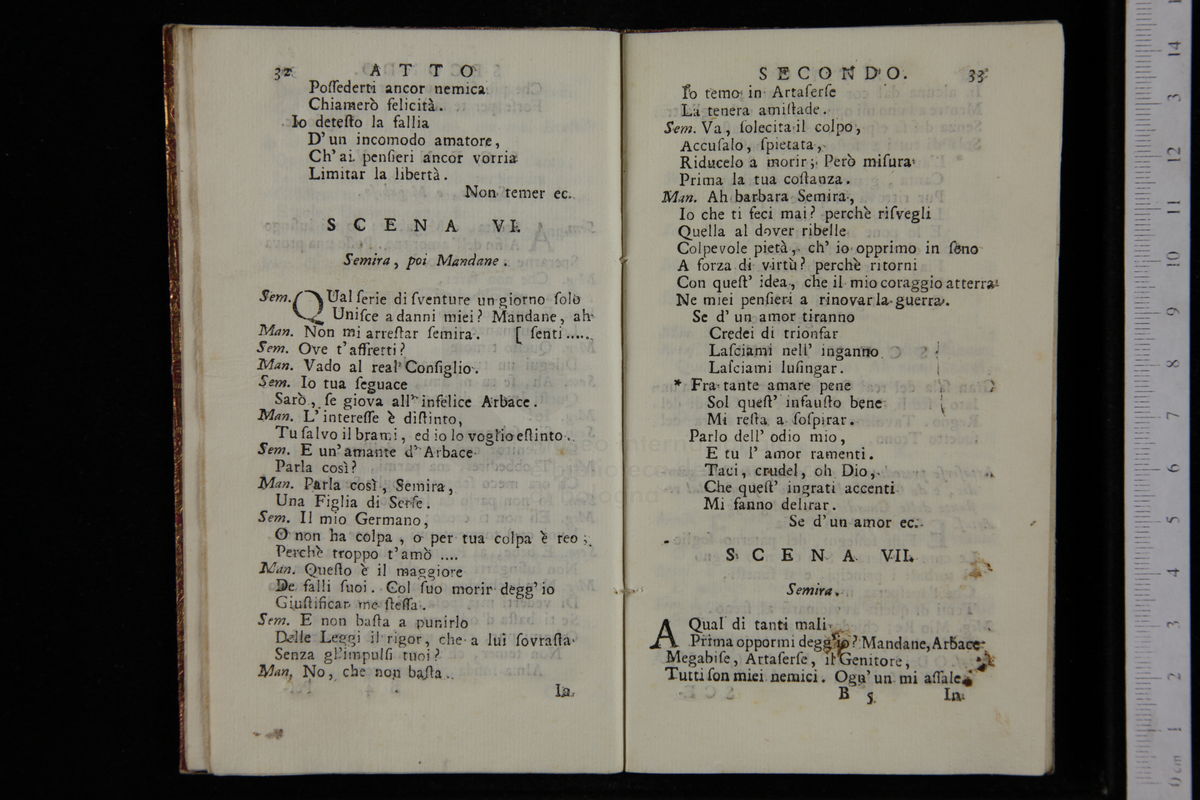 32 ATTO
Poſſederti ancor nemica
Chiamerò felicità.
Io deteſto la fallia
D'un incomodo amatore,
Ch'ai penſieri ancor vorria
Limitar la libertà.
Non temer ec.
SCENA VI.
Semira, poi Mandane.
Sem. QUal ſerie di ſventure un giorno ſolo
Uniſce a danni miei? Mandane, ah
Man. Non mi arreſtar ſemira. [ ſenti.....
Sem. Ove t'affretti?
Man. Vado al real Conſiglio.
Sem. Io tua ſeguace
Sarò, ſe giova all'infelice Arbace.
Man. L'intereſſe è diſtinto,
Tu ſalvo il brami, ed io lo voglio eſtinto.
Sem. E un'amante d'Arbace
Parla così?
Man. Parla così, Semira,
Una Figlia di Serſe.
Sem. Il mio Germano,
O non ha colpa, o per tua colpa è reo;
Perchè troppo t'amò ....
Man. Queſto è il maggiore
De falli ſuoi. Col ſuo morir degg'io
Giuſtificar me ſteſſa.
Sem. E non baſta a punirlo
Delle Leggi il rigor, che a lui ſovraſta
Senza gl'impulſi tuoi?
Man. No, che non baſta.
Io
SECONDO. 33
Io temo in Artaſerſe
La tenera amiſtade.
Sem. Va, ſolecita il colpo,
Accuſalo, ſpietata,
Riducelo a morir; Però miſura
Prima la tua coſtanza.
Man. Ah barbara Semira,
Io che ti feci mai? perchè riſvegli
Quella al dover ribelle
Colpevole pietà, ch'io opprimo in ſeno
A forza di virtù? perchè ritorni
Con queſt'idea, che il mio coraggio atterra
Ne miei penſieri a rinovar la guerra.
Se d'un amor tiranno
Credei di trionfar
Laſciami nell'inganno
Laſciami luſingar.
* Fra tante amare pene
Sol queſt'infauſto bene
Mi reſta a ſoſpirar.
Parlo dell'odio mio,
E tu l'amor ramenti.
Taci, crudel, oh Dio,
Che queſt'ingrati accenti
Mi fanno delirar.
Se d'un amor ec.
SCENA VII.
Semira.
A Qual di tanti mali
Prima oppormi degg'io? Mandane, Arbace
Megabiſe, Artaſerſe, il Genitore,
Tutti ſon miei nemici. Ogn'un mi aſſale
B 5 In